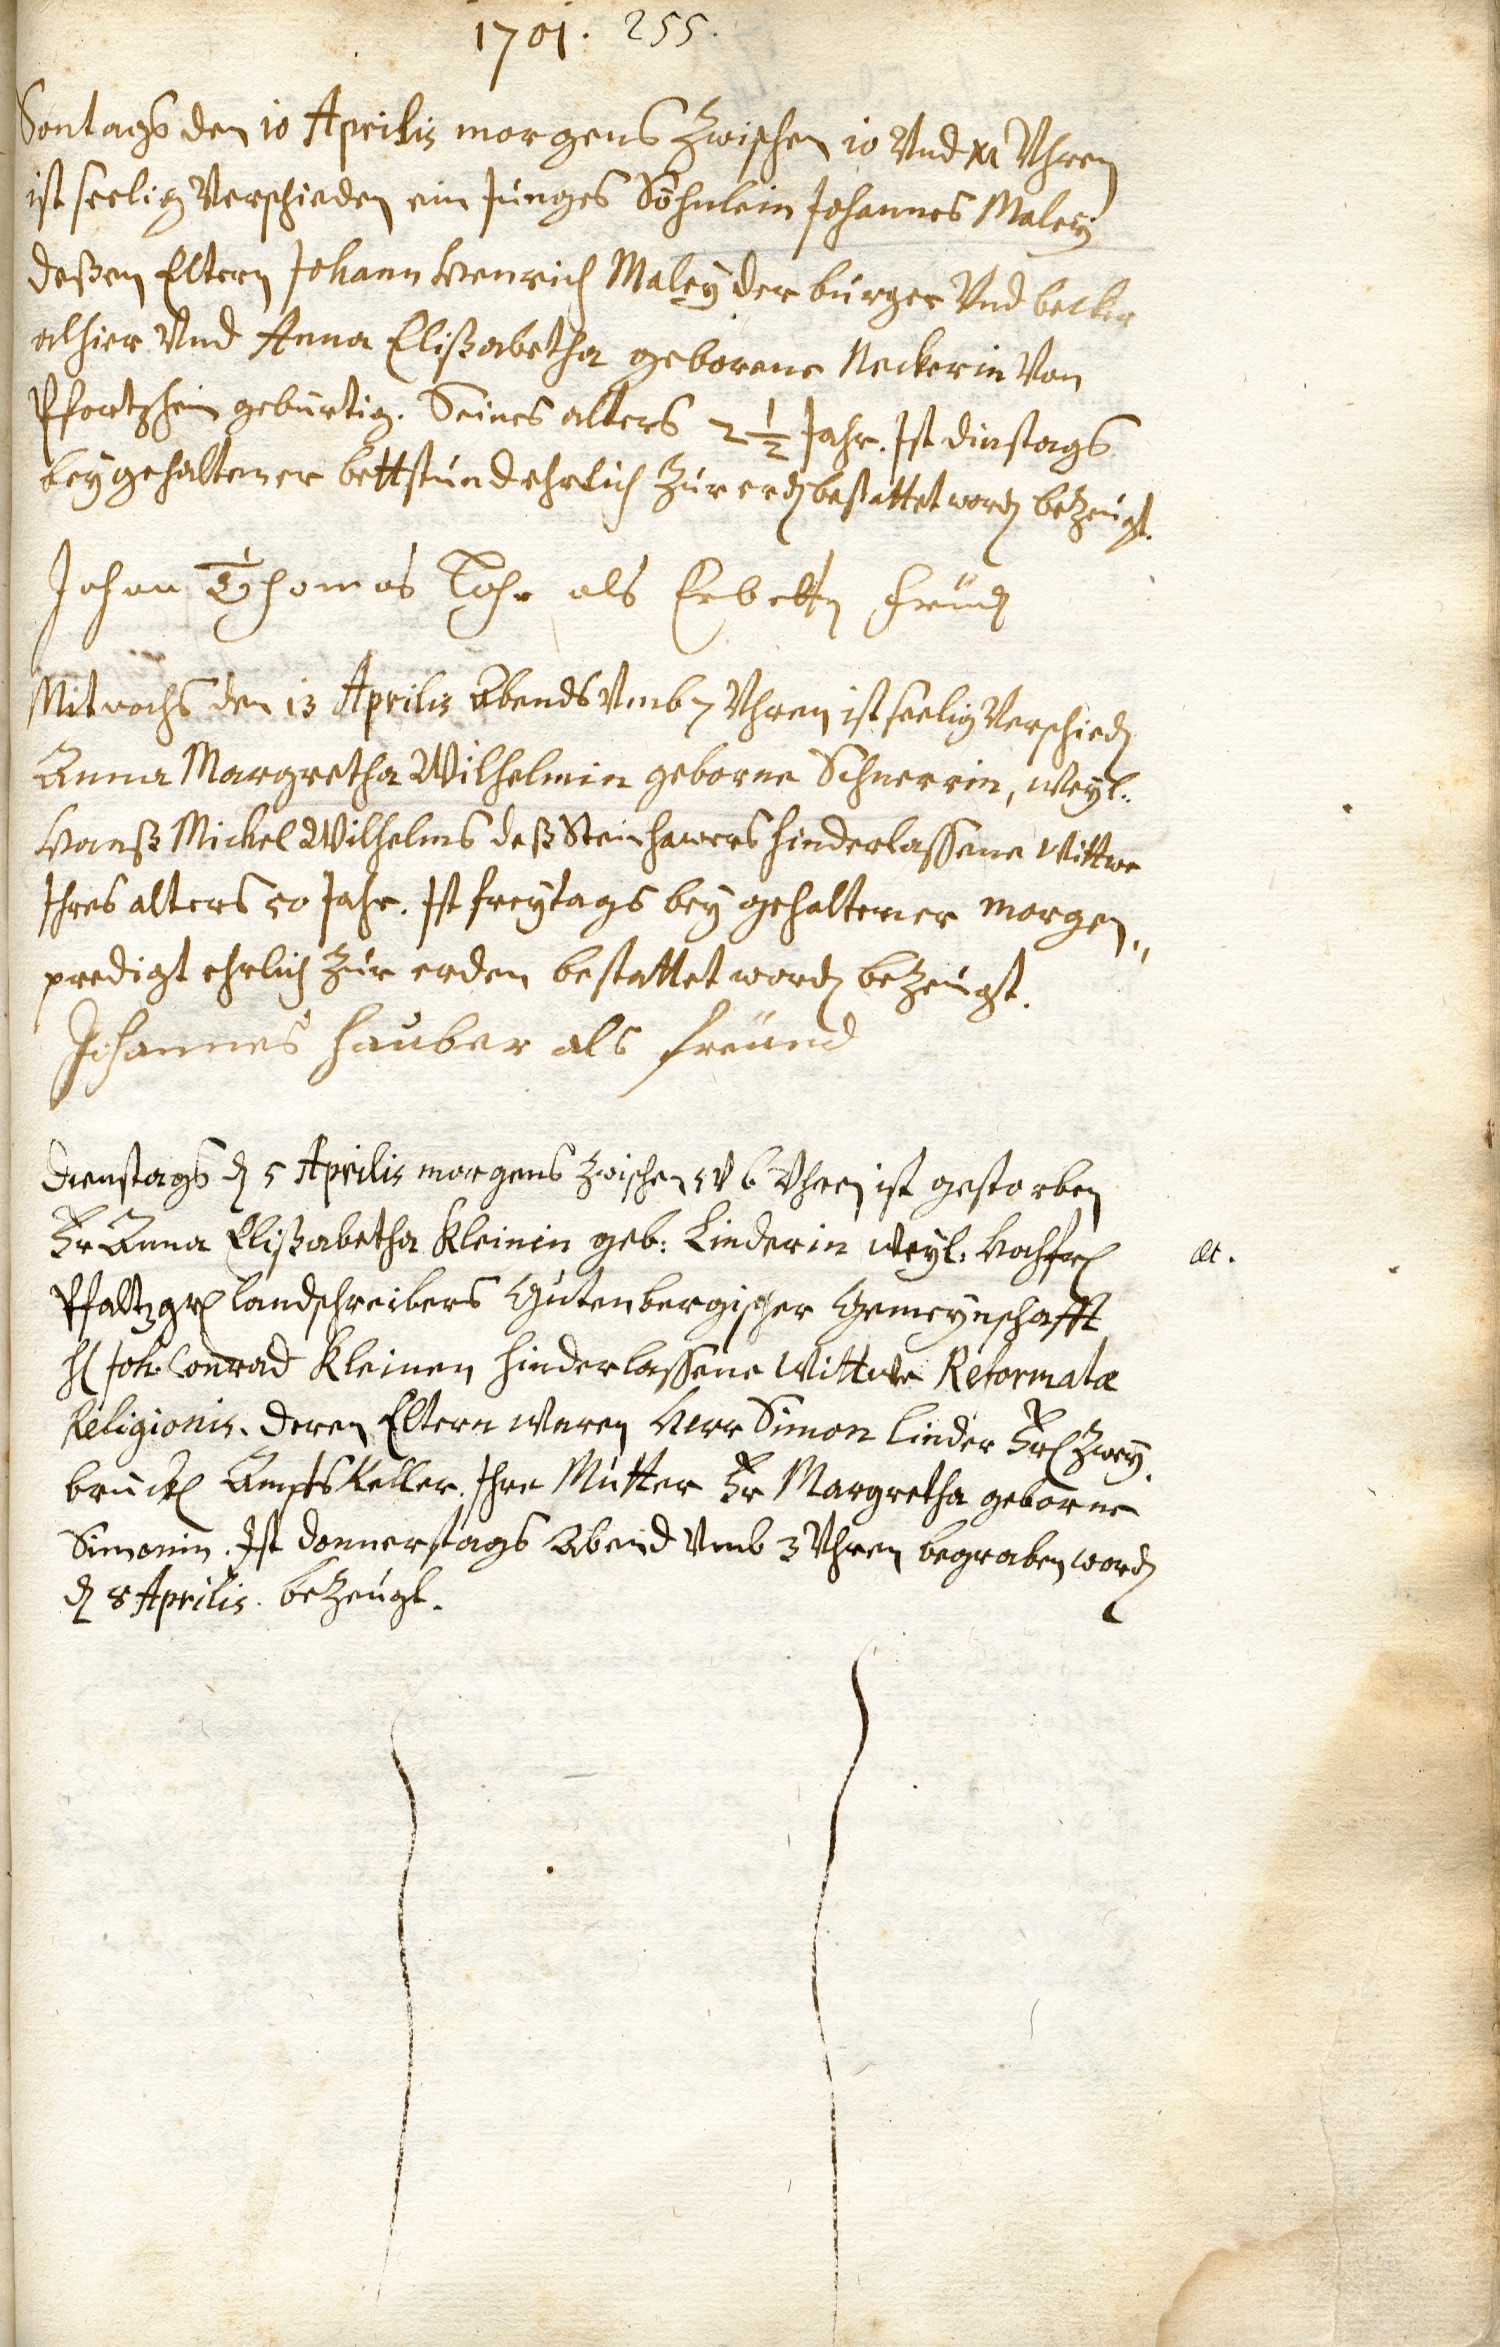 1701. 255.
Sontags den 10 Aprilis morgens zwischen 10 Vnd XI Vhren
ist seelig Verschieden ein Junges Söhnlein Johannes Maley
deßen Eltern Johann Henrich Maley der burger Vnd becker
alhier Vnd Anna Elißabetha geborene Neckerin Von
Pfortzheim gebürtig. Seines alters 2 1/2 Jahr. Ist dinstags
bey gehaltener bettstund ehrlich zur erdẽ bestattet wordẽ bezeugt.
Johan Thomas als Erbettẽ freund
Mitwochs den 13 Aprilis Abends Vmb 7 Vhren ist seelig Verschiedẽ
Anna Margretha Wilhelmin geborne Schnerrin, Weyl.
Hanß Mickel Wilhelms deß Steinhawers hinderlassene Wittwe
Ihres alters 50 Jahr. Ist freytags bey gehaltener morgen„
predigt ehrlich zur erden bestattet wordẽ bezeugt.
Johannes Hauber als freund
Dienstags dẽ 5 Aprilis morgens zwischen 5 V 6 Vhren ist gestorben
Fr Anna Elißabetha Kleinin geb: Linderin Weyl: Hochfrl
æt.
Pfaltzgrl Landschreibers Gutenbergischer Gemeynschafft
Hl Joh. Conrad Kleinen hinderlassene Wittwe Reformatæ
Religionis. deren Eltern waren Herr Simon Linder Frl Zwey
brückl Ampts Keller. Ihre Mutter Fr Margretha geborne
Simonin. Ist donnerstags Abend Vmb 3 Vhren begraben wordẽ
dẽ 8 Aprilis. bezeugt.